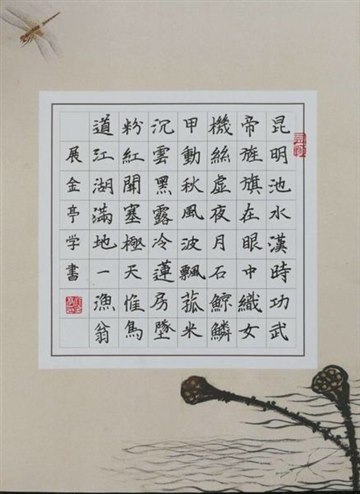 昆明池水漢時功武
帝旌旗在眼中織女
機絲虛夜月石鯨鱗
甲動秋風波飄菰米
沉雲黑露冷蓮房墜
粉紅關塞極天惟鳥
道江湖滿地一漁翁
展金亭学書